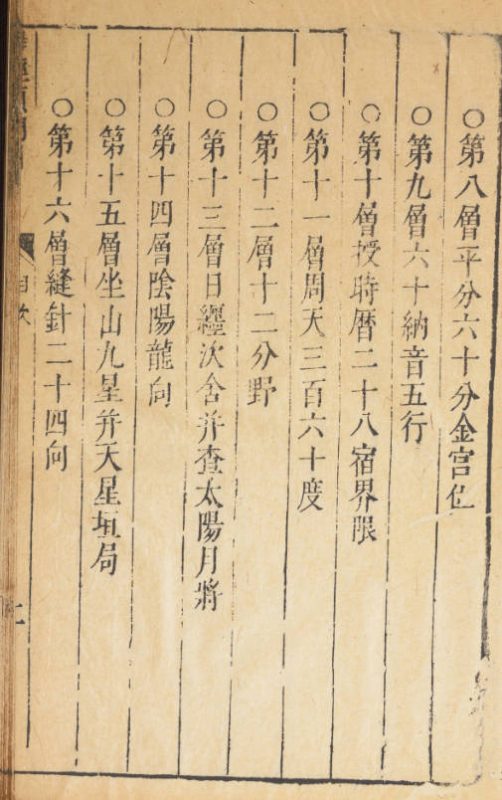 ○第八層平分六十分金宮位
○第九層六十納音五行
○第十層授時曆二十八宿界限
○第十一層周天三百六十度
○第十二層十二分野
○第十三層日纏次舍并查太陽月將
○第十四層陰陽龍向
○第十五層坐山九星并天星垣局
○第十六層縫針二十四向
目次